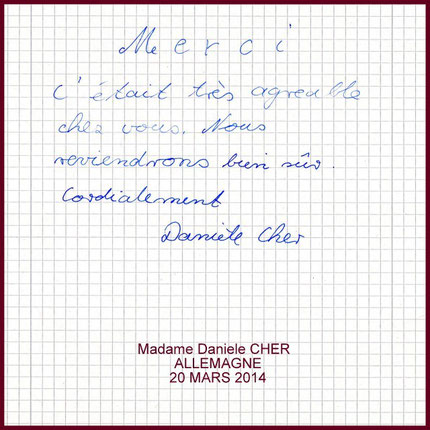 Merci
C'était très agreable
chez vous. Nous
reviendrons bien sûr.
Cordialement
Danièle Cher
Madame Daniele CHER
ALLEMAGNE
20 MARS 2014